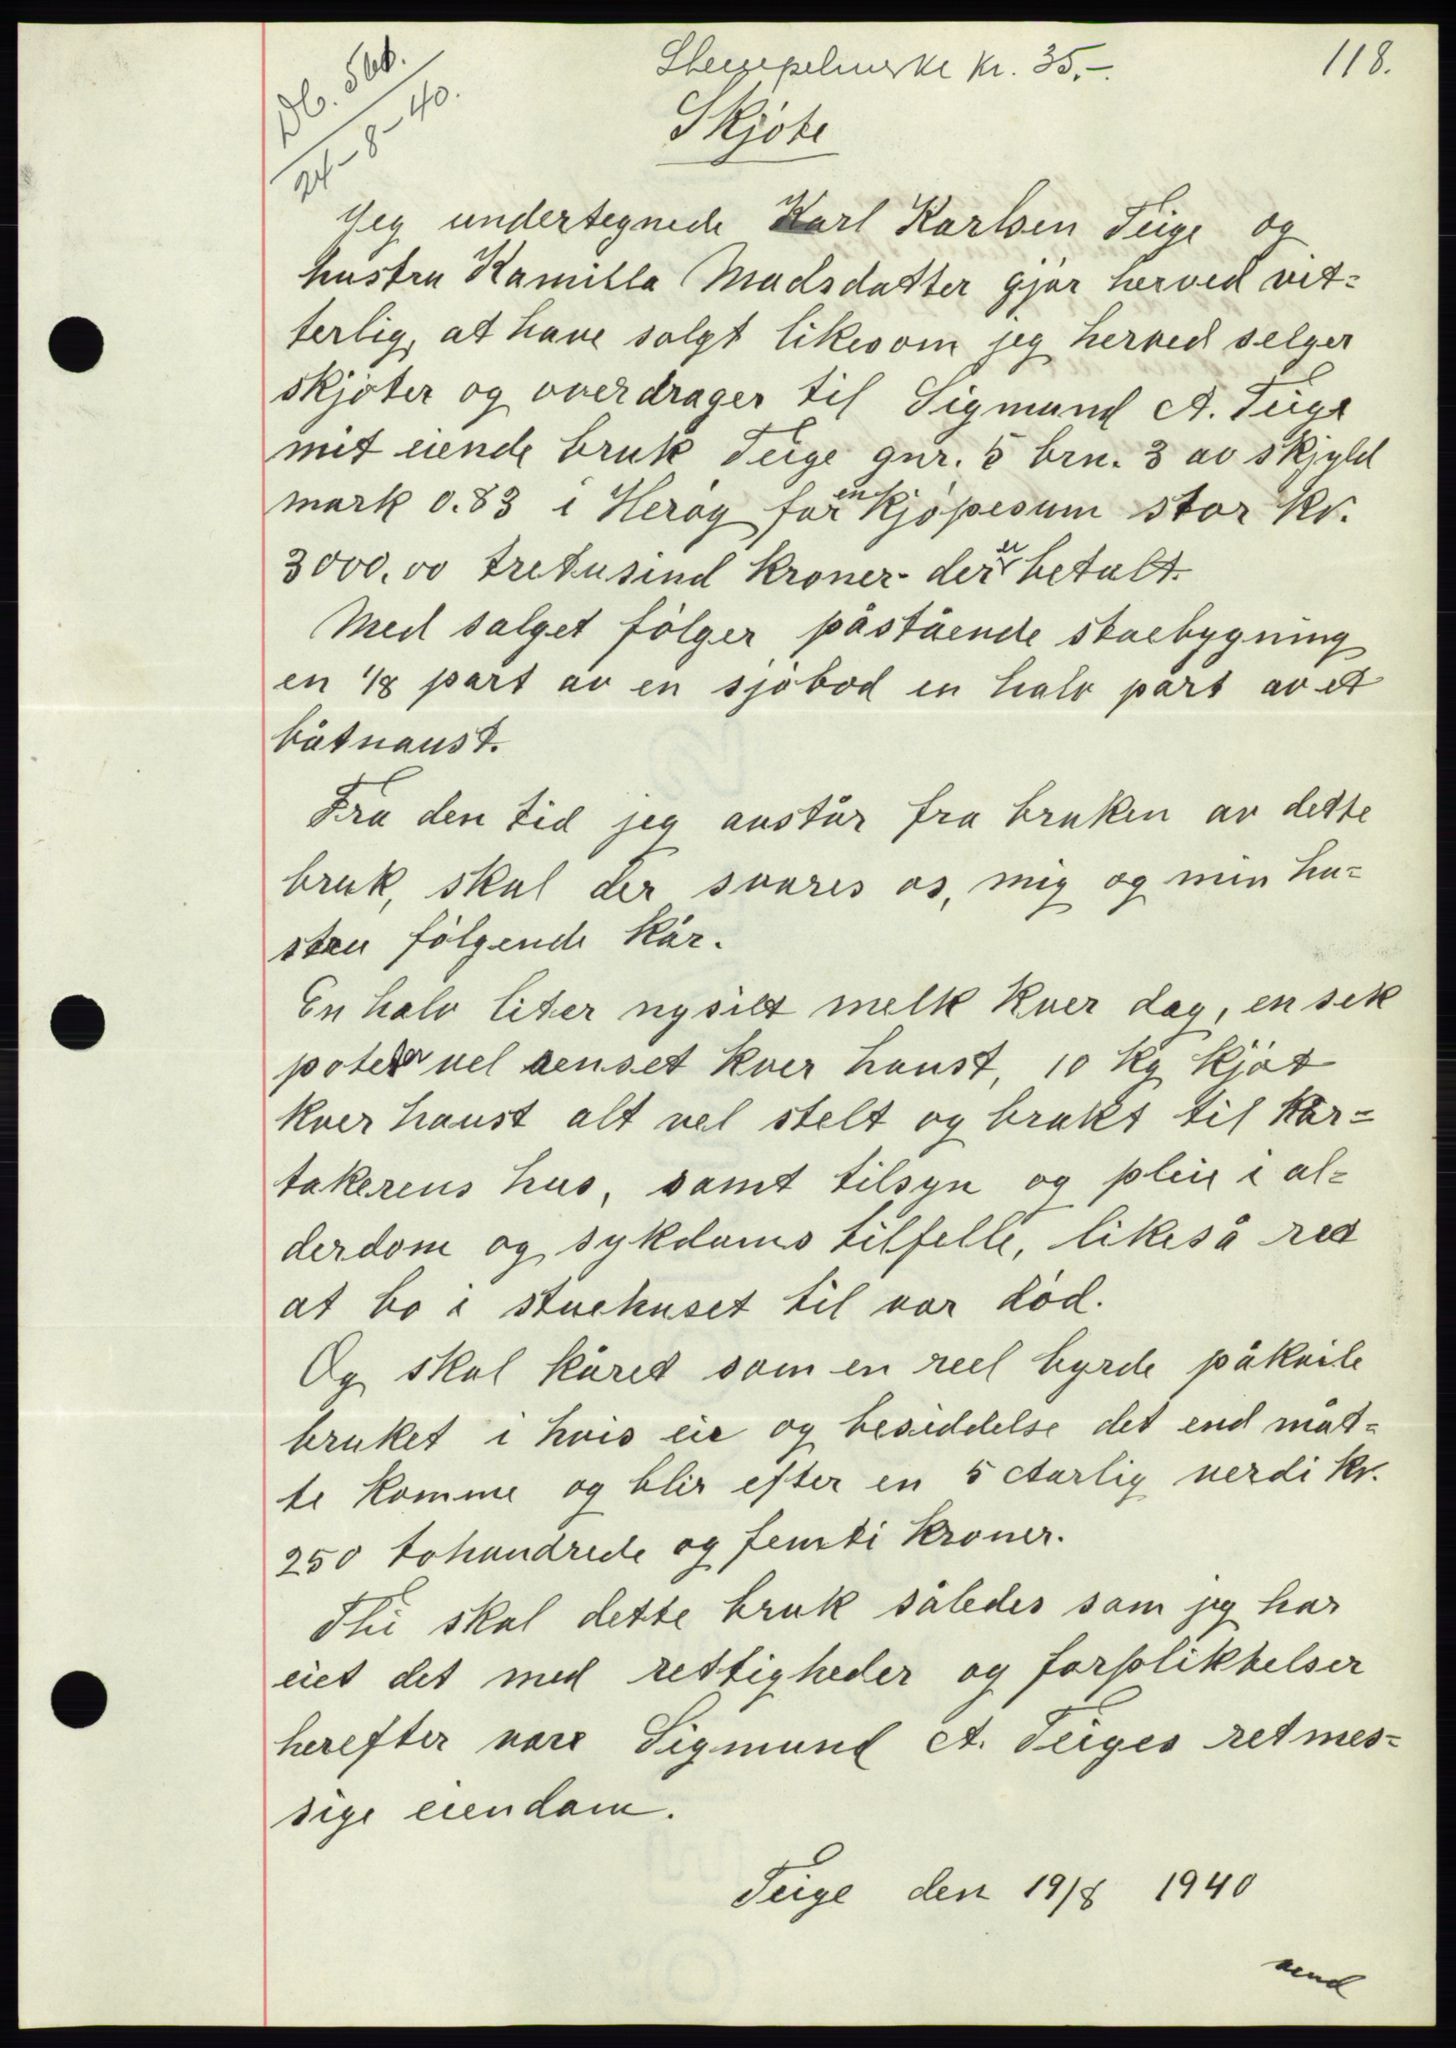 118.
Stempelmerke kr. 35.-.
Db. 560.
24-8-40.
Skjøte
Jeg undertegnede Karl Karlsen Teige og
hustru Kamilla Madsdatter gjør herved vit=
terlig, at have solgt likesom jeg herved selger
skjøter og overdrager til Sigmund A. Teige
mit eiende bruk Teige gnr. 5 brn. 3 av skjyld
mark 0.83 i Herøy for en kjøpesum stor kr.
3000.00 tretusind kroner- der er betalt.
Med salget følger påstående stuebygning
en 1/8 part av en sjøbod en halv part av et
båtnaust.
Fra den tid jeg avstår fra bruken av dette
bruk, skal der svares os, mig og min hu=
stru følgende kår.
En halv liter nysilt melk kver dag, en sek
poteter vel renset kver haust, 10 kg kjøt
kver haust alt vel stelt og brakt til kår=
takerens hus, samt tilsyn og pleie i al=
derdom og sykdoms tilfelle, likeså ret
at bo i stuehuset til vor død.
Og skal kåret som en reel byrde påkvile
bruket i hvis eie og besiddelse det end måt=
te komme og blir efter en 5 Aarlig verdi kr.
250 tohundrede og femti kroner.
Thi skal dette bruk således som jeg har
eiet det med rettigheder og forpliktelser
herefter være Sigmund A. Teiges retmes=
sige eiendom.
Teige den 19/8 1940
vend